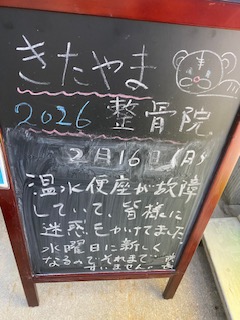 きたやま
2026 整骨院
2月16日(月)
温水便座が故障
していて、皆様に
迷惑をかけてました
水曜日に新しく
なるのでそれまで…
すいません… 院長